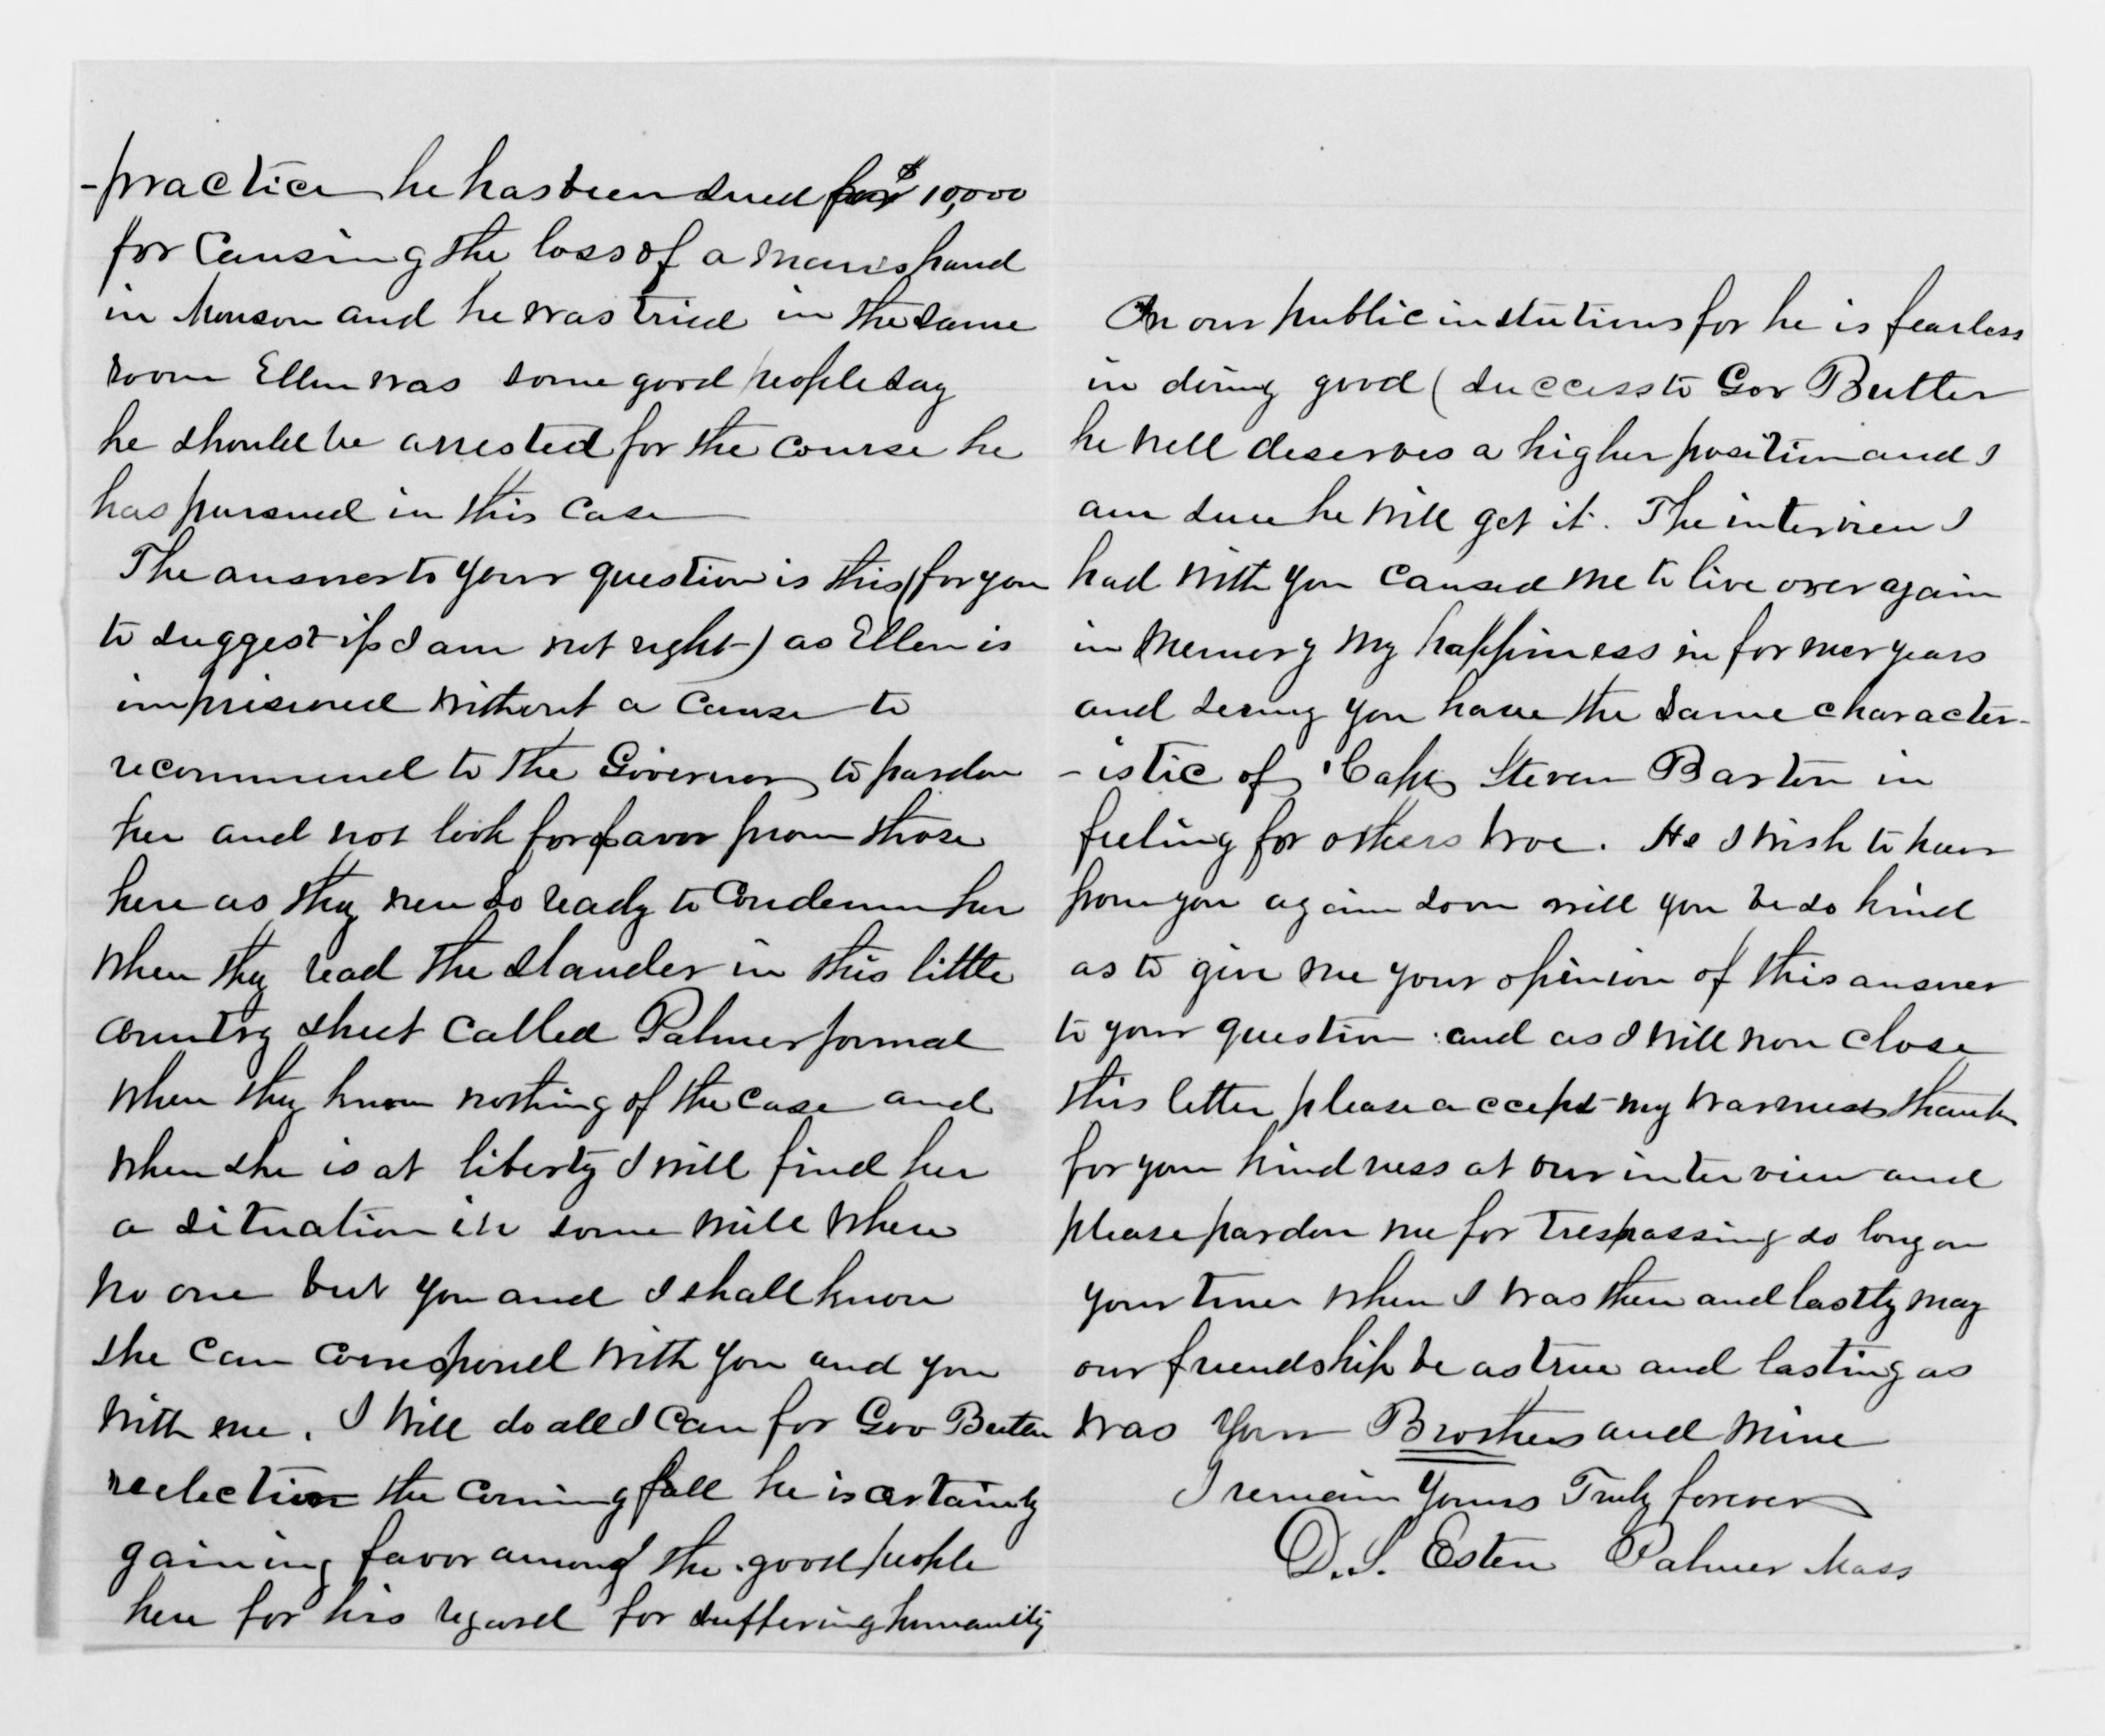 -practice he has been sued for $10,000
for causing the loss of a mans hand
in Monson and he was tried in the same
room Ellen was some good people say
he should be arrested for the course he
has pursued in this case
The answer to your question is this (for you
to suggest if I am not right) as Ellen is
imprisoned without a cause to
recommend to the Governor to pardon
her and not look for favor from those
here as they were so ready to condemn her
when they read the slander in this little
country sheet called Palmer Jornal
when they know nothing of the case and
when she is at liberty I will find her
a situation in some mill where
no one but you and I shall know
she can correspond with you and you
with me. I will do all I can for Gov Butler
reelection the coming fall he is certainly
gaining favor among the good people
here for his regard for suffering humanity
In our public instutions for he is fearless
in doing good (success to Gov Butler
he well deserves a higher position and I
am sure he will get it. The interview I
had with you caused me to live over again
in memory my happiness in former years
and seeing you have the same character-
-istic of Capt Steven Barton in
feeling for others woe. As I wish to hear
from you again soon will you be so kind
as to give me your opinion of this answer
to your question and as I will now close
this letter please accept my warmest thanks
for your kindness at our interview and
please pardon me for trespassing so long on
your time when I was there and lastly may
our friendship be as true and lasting as
was your Brothers and mine
I remain Yours Truly forever
D. S. Esten Palmer Mass